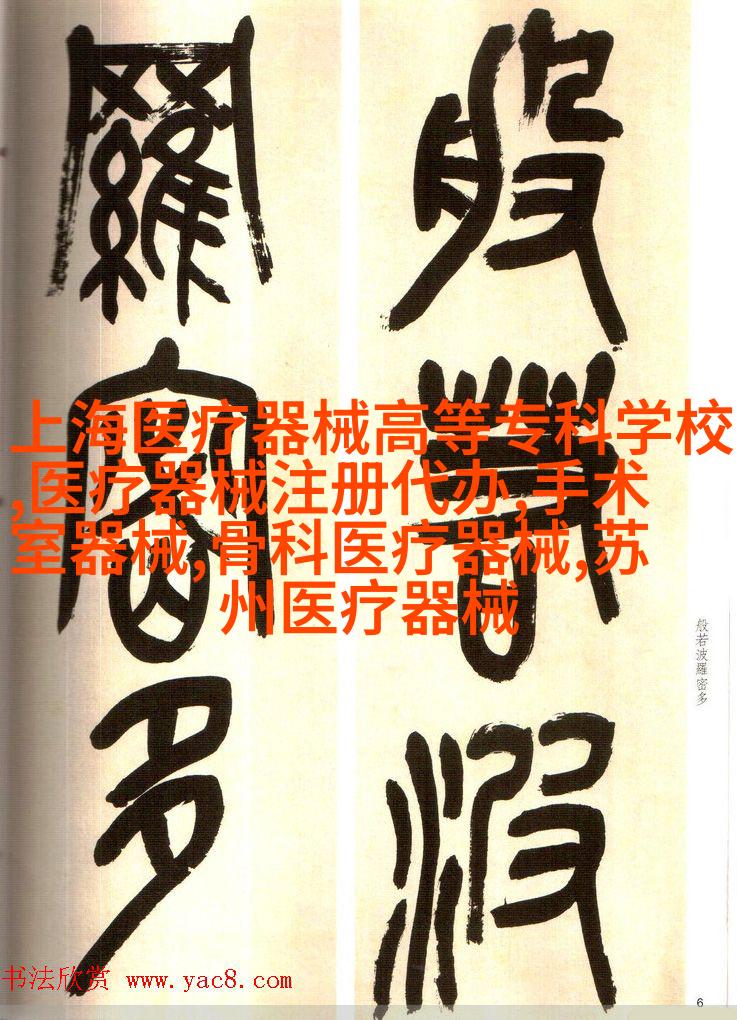 般若波
羅密多
上海医疗器械高等专科学校
,医疗器械注册代办,手术
室器械,骨科医疗器械,苏
州医疗器械
般若波羅密多
书法欣赏 www.yac8.com
6